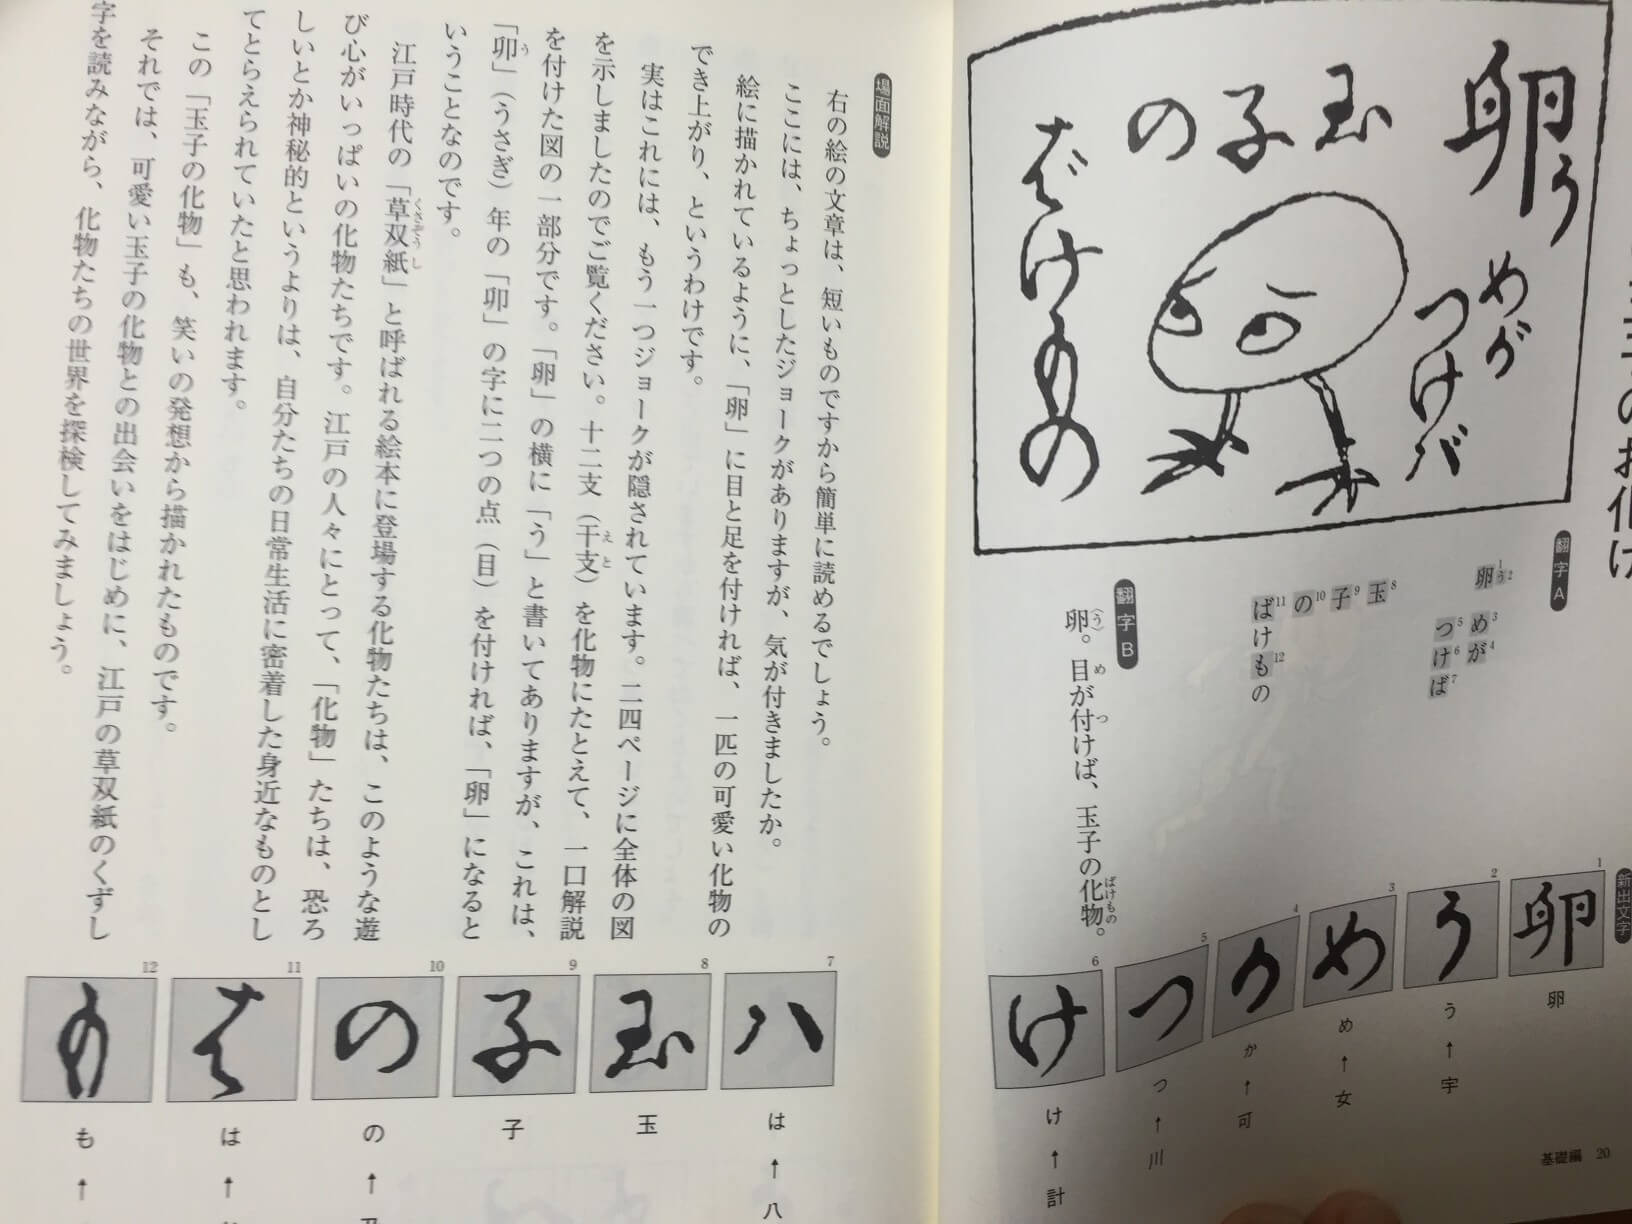 卵う
めが
つけバ
玉子の
ばけもの
玉子のお化け
翻字A
卵う
めが
つけば
玉子の
ばけもの
翻字B
卵。目が付けば、玉子の化物。
新出文字
1 卵
2 う↑宇
3 め↑女
4 か↑可
5 つ↑川
6 け↑計
基礎編 20
場面解説
右の絵の文章は、短いものですから簡単に読めるでしょう。
ここには、ちょっとしたジョークがありますが、気が付きましたか。
絵に描かれているように、「卵」に目と足を付ければ、一匹の可愛い化物の
でき上がり、というわけです。
実はこれには、もう一つジョークが隠されています。二四ページに全体の図
を示しましたのでご覧ください。十二支（干支）を化物にたとえて、一口解説
を付けた図の一部分です。「卵」の横に「う」と書いてありますが、これは、
「卯」（うさぎ）年の「卯」の字に二つの点（目）を付ければ、「卵」になると
いうことなのです。
江戸時代の「草双紙」と呼ばれる絵本に登場する化物たちは、このような遊
び心がいっぱいの化物たちです。江戸の人々にとって、「化物」たちは、恐ろ
しいとか神秘的というよりは、自分たちの日常生活に密着した身近なものとし
てとらえられていたと思われます。
この「玉子の化物」も、笑いの発想から描かれたものです。
それでは、可愛い玉子の化物との出会いをはじめに、江戸の草双紙のくずし
字を読みながら、化物たちの世界を探検してみましょう。
7 は↑八
8 玉
9 子
10 の↑
11 は↑
12 も↑